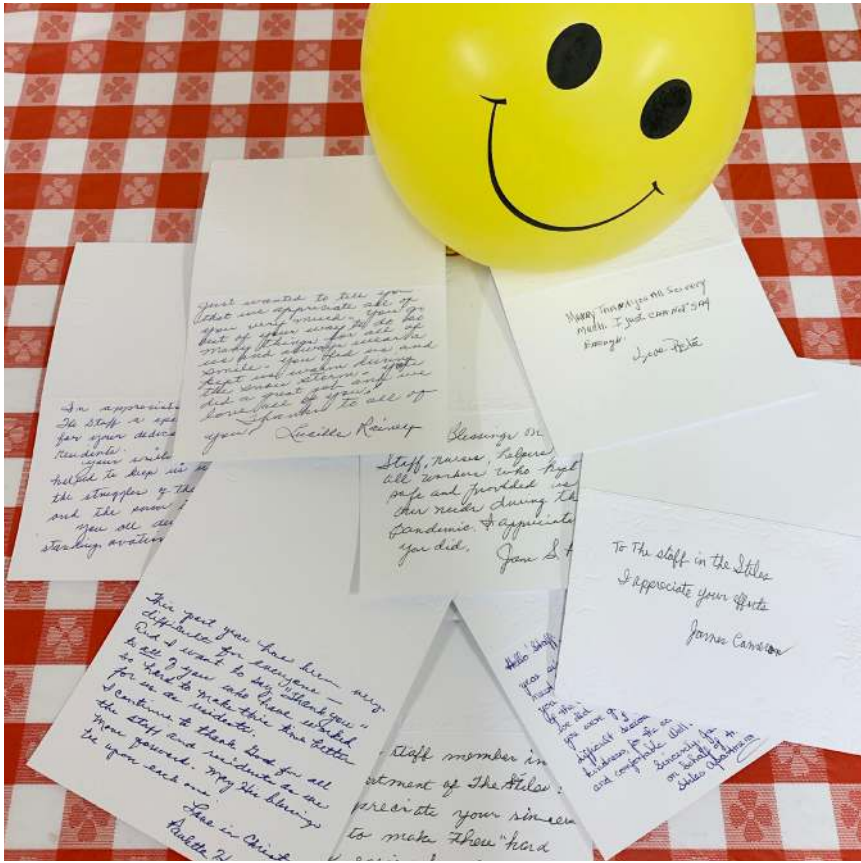 Just wanted to tell you
that we appreciate all of
you very much. You go
out of your way to do so
many things for all of
us and always wear a
smile. You fed us and
kept us warm during
the snow storm. You
did a great job and we
love all of you.
Thanks to all of
you!
Lucille Rainey
Many Thank you All So very
much. I Just CAN NOT SAY
Enough.
I'm appreciati
The Staff a spe
for your dedic
Residents.
helped to keep us
the struggles of the
and the snow
you all de
standing ovation
Blessings on
Staff, nurses, helpers
all workers who kept
safe and provided us
our needs during th
Pandemic. I appreciate
you did.
Jane S.
To The staff in the Stiles
I appreciate your efforts
James Cameron
This past year has been very
difficult for everyone –
And I want to say "Thank you"
to all of you who have worked
so hard to make this time better
for us as residents.
I continue to thank God for all
the staff and residents as we
move forward. May His blessings
be upon each one.
Love in Christ
Paulette W
Hello Staff
you
you
difficult season
kindness, for the
and comfortable
Sincerely,
on behalf of th
Stiles Apartments
staff member in
rtment of The Stiles:
preciate your sincere
to make these "hard